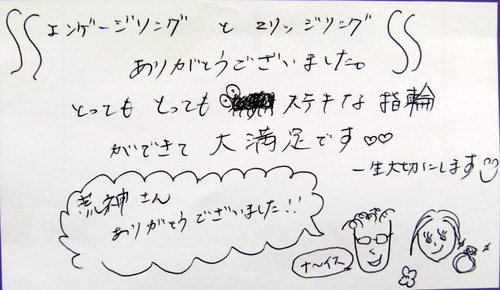 エンゲージリング と マリッジリング
ありがとうございました。
とっても とっても ステキな 指輪
ができて 大満足です♡♡
一生大切にします
荒神さん
ありがとうございました!!
ナ〜イス